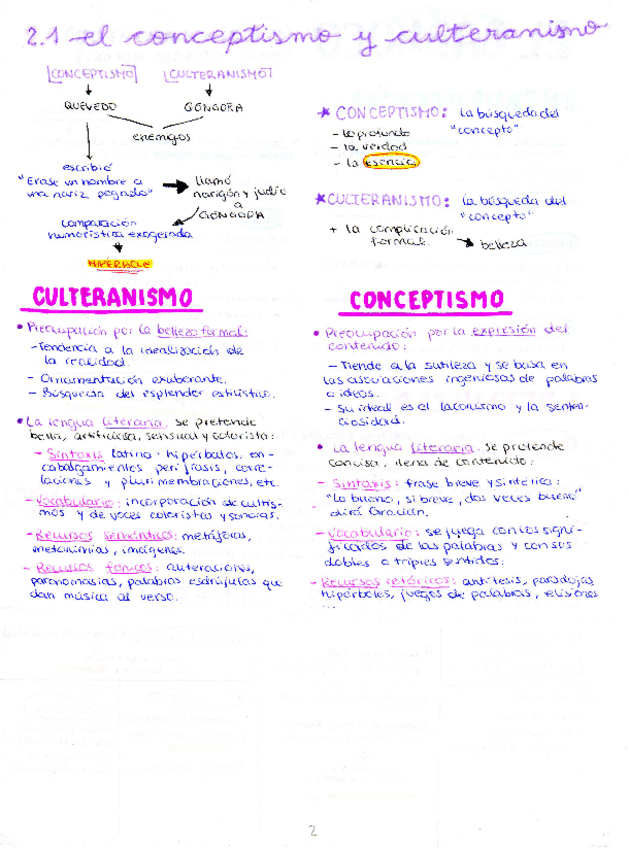 2.1 el conceptismo y culteranismo
CONCEPTISMO CULTERANISMO
QUEVEDO GÓNGORA
enemigos
escribió
"Erase un hombre a
una nariz pegado"
llamó
narigón y judío
a
GÓNGORA
comparación
humorística exagerada
HIPÉRBOLE
* CONCEPTISMO: la búsqueda del
"concepto"
- lo profundo
- la verdad
- la esencia
* CULTERANISMO: la búsqueda del
"concepto"
+ la complicación
formal.
belleza
CULTERANISMO
• Preocupación por la belleza formal:
- Tendencia a la idealización de
la realidad.
- Ornamentación exuberante.
- Búsqueda del esplendor estilístico.
• La lengua literaria se pretende
bella, artificiosa, sensual y colorista:
- Sintaxis latina: hipérbatos, en-
cabalgamientos perífrasis, corre-
laciones y plurimembraciones, etc.
- Vocabulario: incorporación de cultis-
mos y de voces coloristas y sonoras.
- Recursos semánticos: metáforas,
metonimias, imágenes.
- Recursos fónicos: aliteraciones,
paronomasias, palabras esdrújulas que
dan música al verso.
CONCEPTISMO
• Preocupación por la expresión del
contenido:
- Tiende a la sutileza y se basa en
las asociaciones ingeniosas de palabras
o ideas.
- Su ideal es el laconismo y la senten-
ciosidad.
• La lengua literaria se pretende
concisa, llena de contenido:
- Sintaxis: frase breve y sintética:
"Lo bueno, si breve, dos veces bueno"
dirá Gracián.
- Vocabulario: se juega con los signi-
ficados de las palabras y con sus
dobles o triples sentidos.
- Recursos retóricos: antítesis, paradojas
hipérboles, juegos de palabras, elisiones
...
2